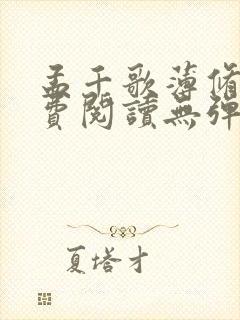 孟千歌薄脩
費閱讀無彈
夏塔才